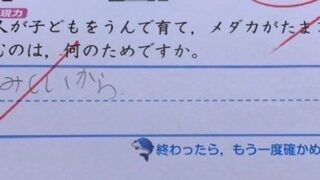 現力
人が子どもをうんで育て，メダカがたま
むのは，何のためですか。
さみしいから
終わったら，もう一度確かめ